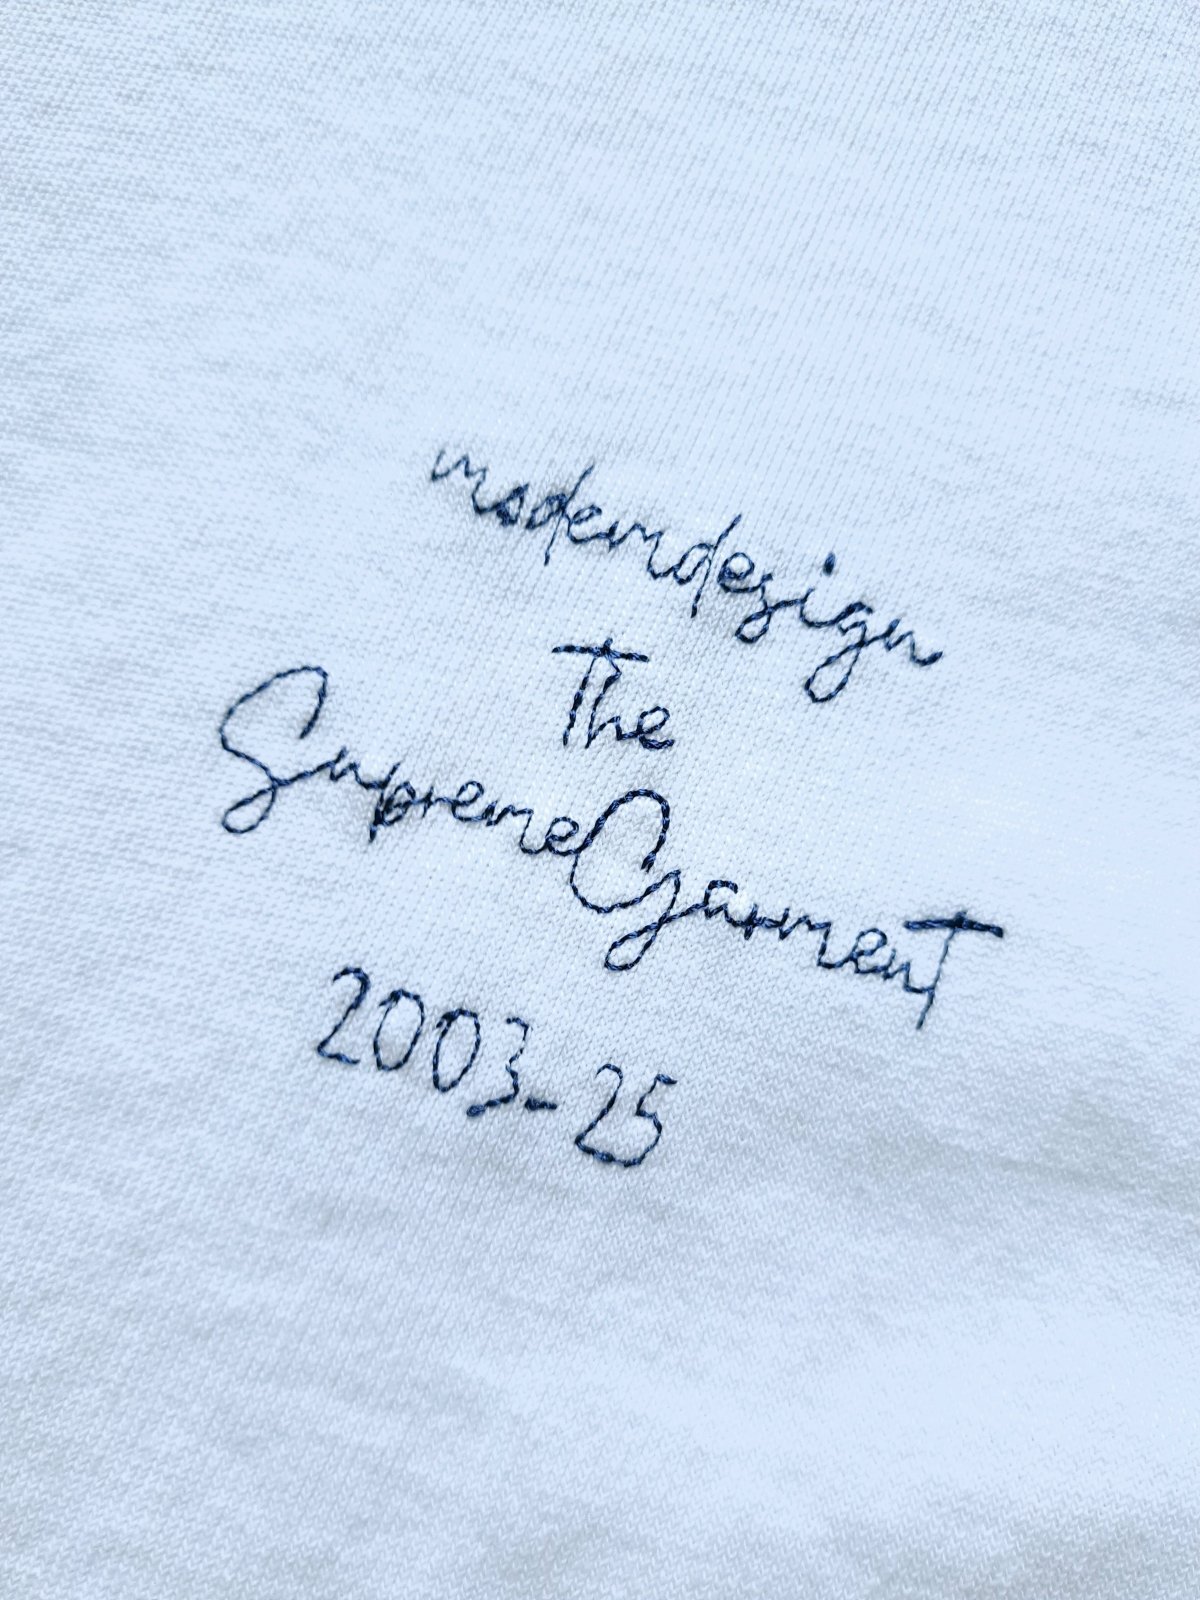 moderndesign
The
SupremeGarment
2003-25